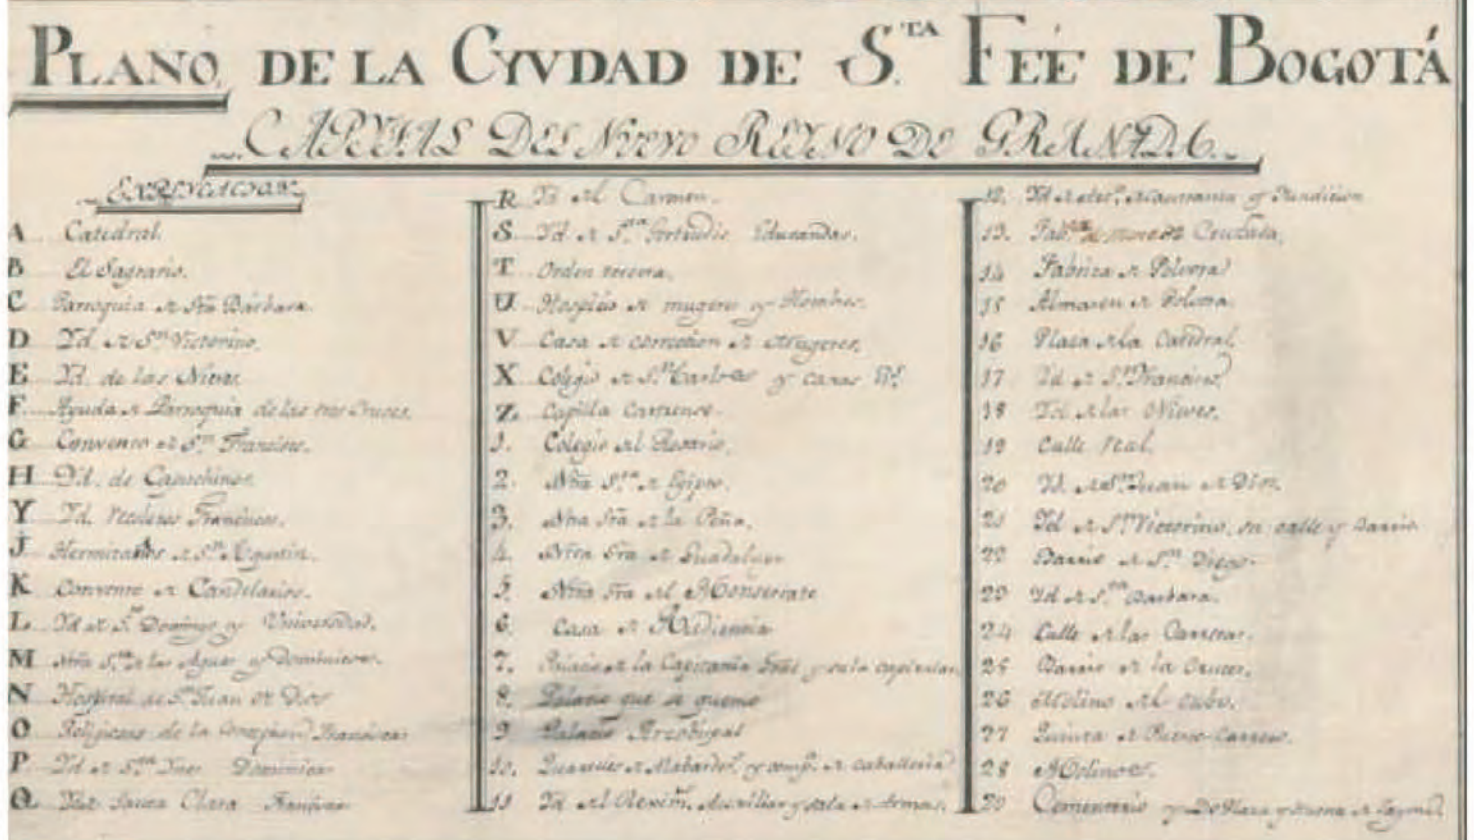 PLANO, DE LA CYVDAD DE S.TA FEÉ DE BOGOTÁ
CAPITAL DEL Nuevo REYNO DE GRANADA.
EXPLICACION
A Catedral.
B El Sagrario.
C Parroquia de Sta Bárbara.
D Yd. de Sn Victorino.
E Yd. de las Nieves
F Ayuda de Parroquia de las tres Cruces.
G Convento de Sn Francisco.
H Yd. de Capuchinos.
Y Yd. Recoletos Franciscos.
J Hermitaños de Sn Agustin.
K Convento de Candelarios.
L Yd de S. Domingo y Universidad.
M Ntra Sra de las Aguas y Dominicos.
N Hospital de Sn Juan de Dios
O Religiosas de la Concepcion Francisca
P Yd de Sta Ines Dominica
Q Yd Santa Clara Francisca
R Yd del Carmen.
S Yd. de Sta Gertrudis Educandas.
T Orden tercera.
U Hospicio de mugeres y Hombres.
V Casa de correccion de Mugeres.
X Colegio de Sn Carlos y casas
Z Capilla Castrense.
1. Colegio del Rosario.
2. Ntra Sra de Egipto.
3. Ntra Sra de la Peña.
4. Ntra Sra de Guadalupe
5. Ntra Sra del Monserrate
6. Casa de Audiencia
7. Palacio de la Capitania Gral y sala capitular.
8. Palacio que se quemo
9 Palacio Arzobispal
10. Quarteles de Alabarders y comp. de caballeria
11 Yd del Regim. Auxiliar y sala de Armas.
12. Yd de y Fundicion
13. Fab. de
14 Fabrica de Polvora
15 Almasen de Polvora.
16 Plasa de la Catedral.
17 Yd de Sn Francisco
18 Yd de las Nieves.
19 Calle Real.
20 Yd. de Sn Juan de Dios.
21 Yd de Sn Victorino, su calle y Barrio
22 Barrio de Sn Diego.
23 Yd de Sta Barbara.
24 Calle de las Carreras.
25 Barrio de la Cruces.
26 Molino del cubo.
27 Quinta de Puerto Carrero.
28 Molinos.
29 Cementerio y de